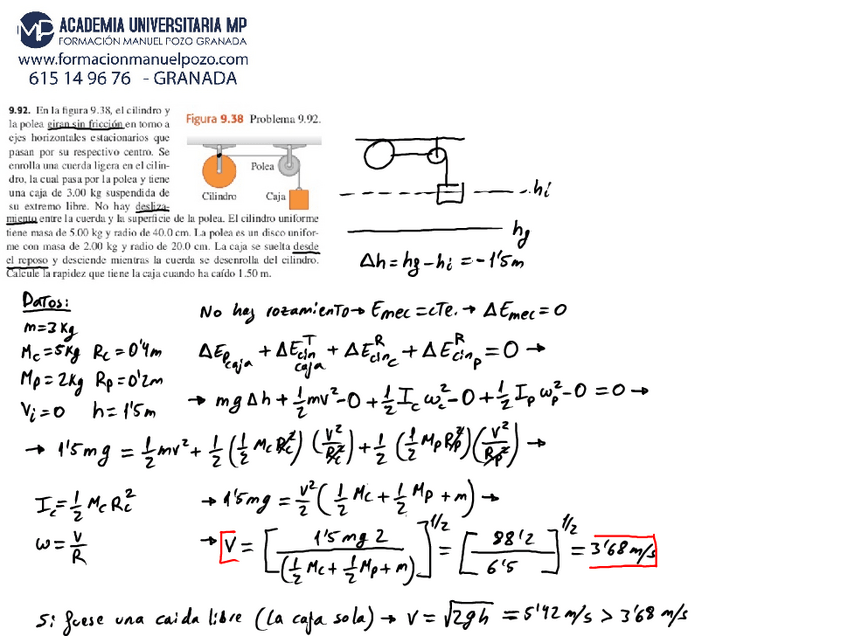 ACADEMIA UNIVERSITARIA MP
FORMACIÓN MANUEL POZO GRANADA
www.formacionmanuelpozo.com
615 14 96 76 - GRANADA
9.92. En la figura 9.38, el cilindro y
la polea giran sin fricción en torno a
ejes horizontales estacionarios que
pasan por su respectivo centro. Se
enrolla una cuerda ligera en el cilin-
dro, la cual pasa por la polea y tiene
una caja de 3.00 kg suspendida de
su extremo libre. No hay desliza-
miento entre la cuerda y la superficie de la polea. El cilindro uniforme
tiene masa de 5.00 kg y radio de 40.0 cm. La polea es un disco unifor-
me con masa de 2.00 kg y radio de 20.0 cm. La caja se suelta desde
el reposo y desciende mientras la cuerda se desenrolla del cilindro.
Calcule la rapidez que tiene la caja cuando ha caído 1.50 m.
Figura 9.38 Problema 9.92.
Polea
Cilindro
Caja
hi
hg
Δh = hg - hi = -1'5m
Datos:
m=3kg
Mc=5kg Rc=0'4m
Mp=2kg Rp=0'2m
Vi=0 h=1'5m
No hay rozamiento → Emec = cte. → ΔEmec = 0
ΔEp caja + ΔE^T cin caja + ΔE^R cin c + ΔE^R cin p = 0 →
→ mgΔh + 1/2 mv² - 0 + 1/2 Ic ωc² - 0 + 1/2 Ip ωp² - 0 = 0 →
→ 1'5mg = 1/2 mv² + 1/2 (1/2 Mc Rc²) (v²/Rc²) + 1/2 (1/2 Mp Rp²) (v²/Rp²) →
Ic = 1/2 Mc Rc²
→ 1'5mg = v²/2 (1/2 Mc + 1/2 Mp + m) →
ω = v/R
→ V = [1'5mg2 / (1/2 Mc + 1/2 Mp + m)]^1/2 = [88'2 / 6'5]^1/2 = 3'68 m/s
Si fuese una caida libre (la caja sola) → V = √2gh = 5'42 m/s > 3'68 m/s